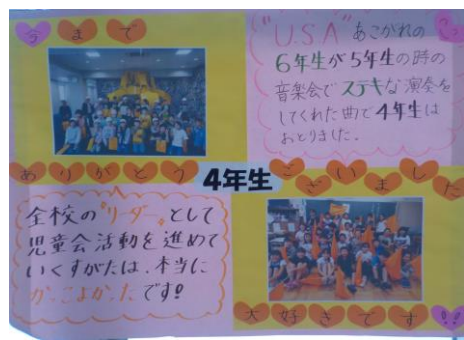 今まで
"U.S.A"あこがれの
6年生が5年生の時の
音楽会でステキな演奏を
してくれた曲で4年生は
おどりました。
ありがとう
4年生
ございました
全校の"リーダー"として
児童会活動を進めて
いくすがたは、本当に
かっこよかったです!
大好きです!!